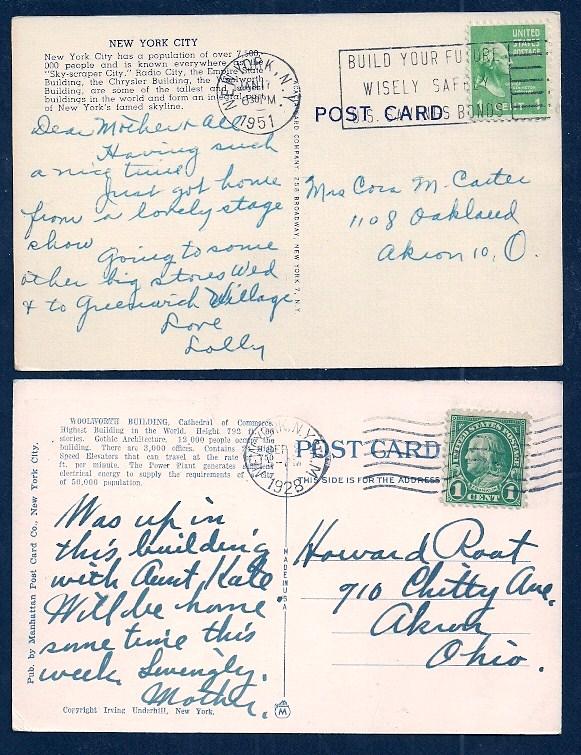 NEW YORK CITY
New York City has a population of over 7,500,
000 people and is known everywhere as the
"Sky-scraper City." Radio City, the Empire State
Building, the Chrysler Building, the Woolworth
Building, are some of the tallest and
buildings in the world and form an integral
of New York's famed skyline.
NEW YORK, N.Y.
1951
BUILD YOUR FUTURE
WISELY SAFELY
U.S. SAVINGS BONDS
UNITED
STATES
POSTAGE
POST CARD
Dear Mother & All
Having such
a nice time
Just got home
from a lovely stage
show
Going to some
other big stores Wed
& to Greenwich Village
Love
Lolly
CARD COMPANY, 258 BROADWAY, NEW YORK 7, N.Y.
Mrs Cora M. Carter
1108 Oakland
Akron 10, O.
WOOLWORTH BUILDING, Cathedral of Commerce
Highest Building in the World. Height 792 ft.
stories. Gothic Architecture. 12,000 people occupy the
building. There are 3,000 offices. Contains
Speed Elevators that can travel at the rate
ft. per minute. The Power Plant generates
electrical energy to supply the requirements
of 50,000 population.
1928
POST CARD
THIS SIDE IS FOR THE ADDRESS
UNITED STATES POSTAGE
FRANKLIN
1 CENT 1
Pub. by Manhattan Post Card Co., New York City.
Was up in
this building
with Aunt Kate
Will be home
some time this
week. Lovingly.
Mother.
Copyright Irving Underhill, New York.
MADE IN USA
M
Howard Root
910 Chitty Ave.
Akron
Ohio.